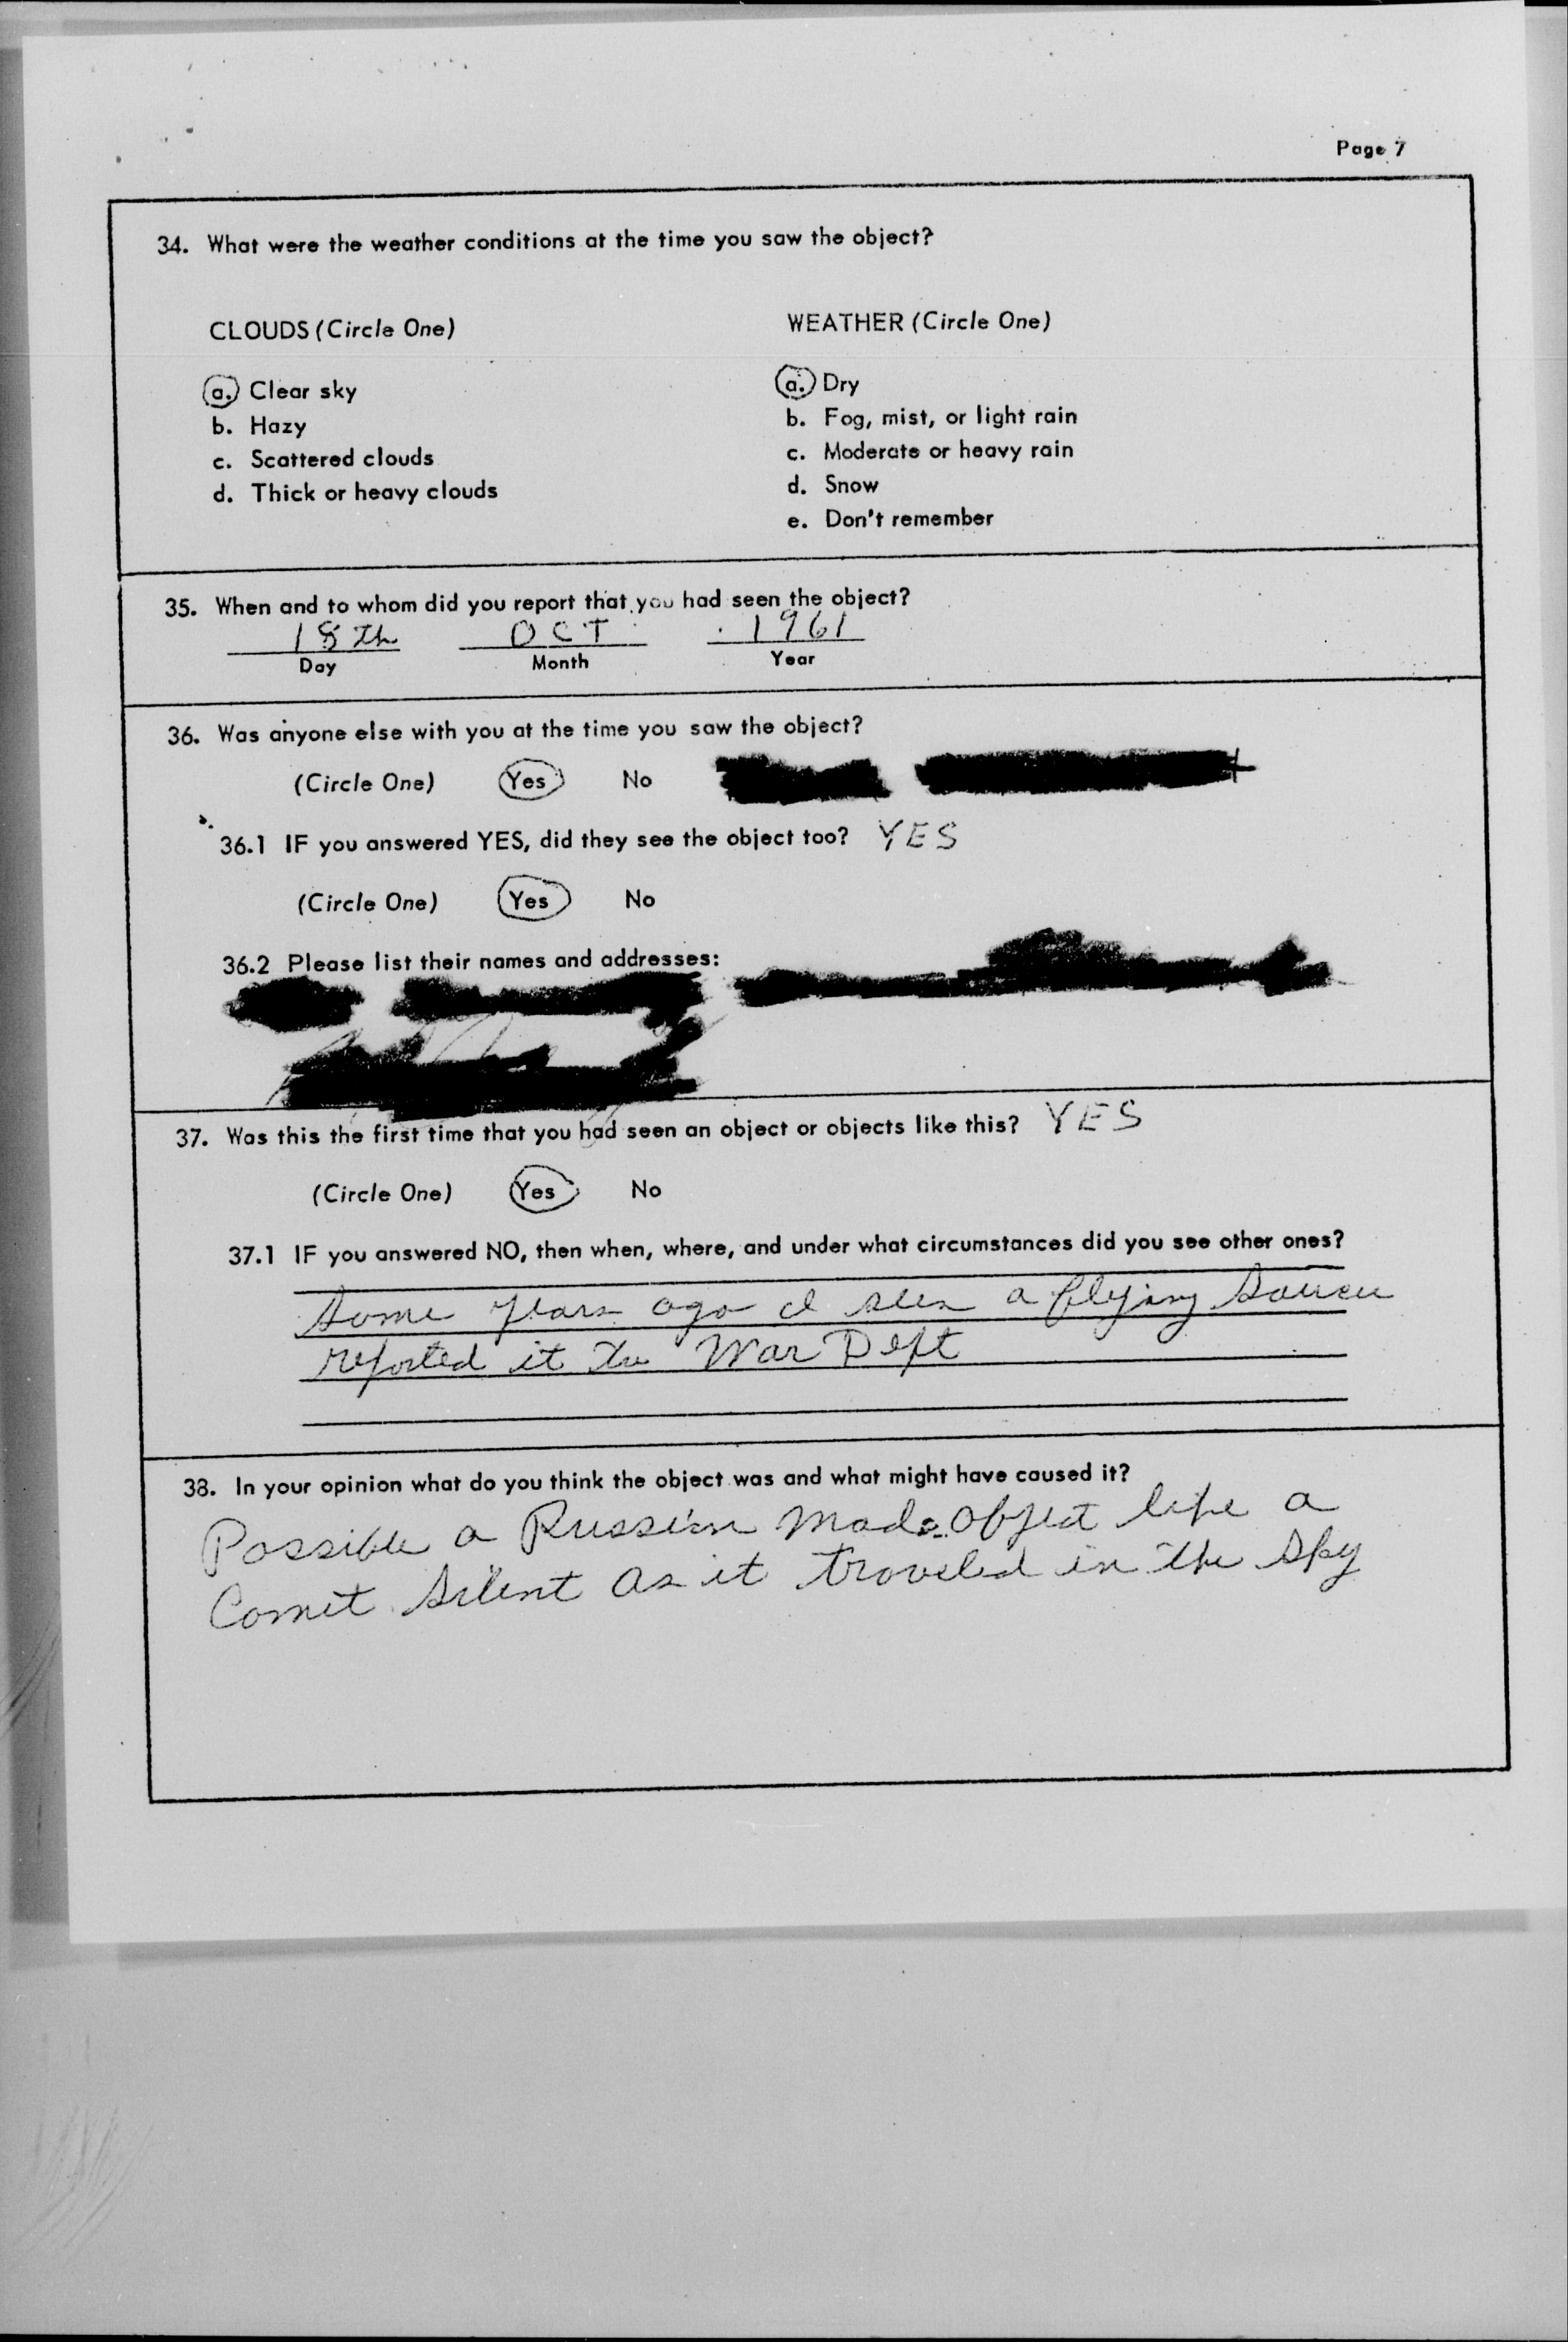 Page 7
34. What were the weather conditions at the time you saw the object?
CLOUDS (Circle One)
WEATHER (Circle One)
a. Clear sky
b. Hazy
c. Scattered clouds
d. Thick or heavy clouds
a. Dry
b. Fog, mist, or light rain
c. Moderate or heavy rain
d. Snow
e. Don't remember
35. When and to whom did you report that you had seen the object?
18th OCT 1961
Day Month Year
36. Was anyone else with you at the time you saw the object?
(Circle One) Yes No
36.1 IF you answered YES, did they see the object too? YES
(Circle One) Yes No
36.2 Please list their names and addresses:
37. Was this the first time that you had seen an object or objects like this? YES
(Circle One) Yes No
37.1 IF you answered NO, then when, where, and under what circumstances did you see other ones?
Some years ago I seen a flying Saucer
reported it to War Dept
38. In your opinion what do you think the object was and what might have caused it?
Possible a Russian made object like a
Comet Silent as it traveled in the Sky